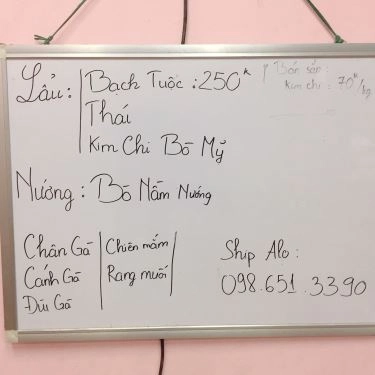 Lẩu: Bạch Tuộc : 250k
Thái
Kim Chi Bò Mỹ
Bán sẵn :
Kim chi : 70k/kg
Nướng : Bò Nầm Nướng
Chân Gà
Cánh Gà
Đùi Gà
Chiên mắm
Rang muối
Ship Alo :
098.651.3390